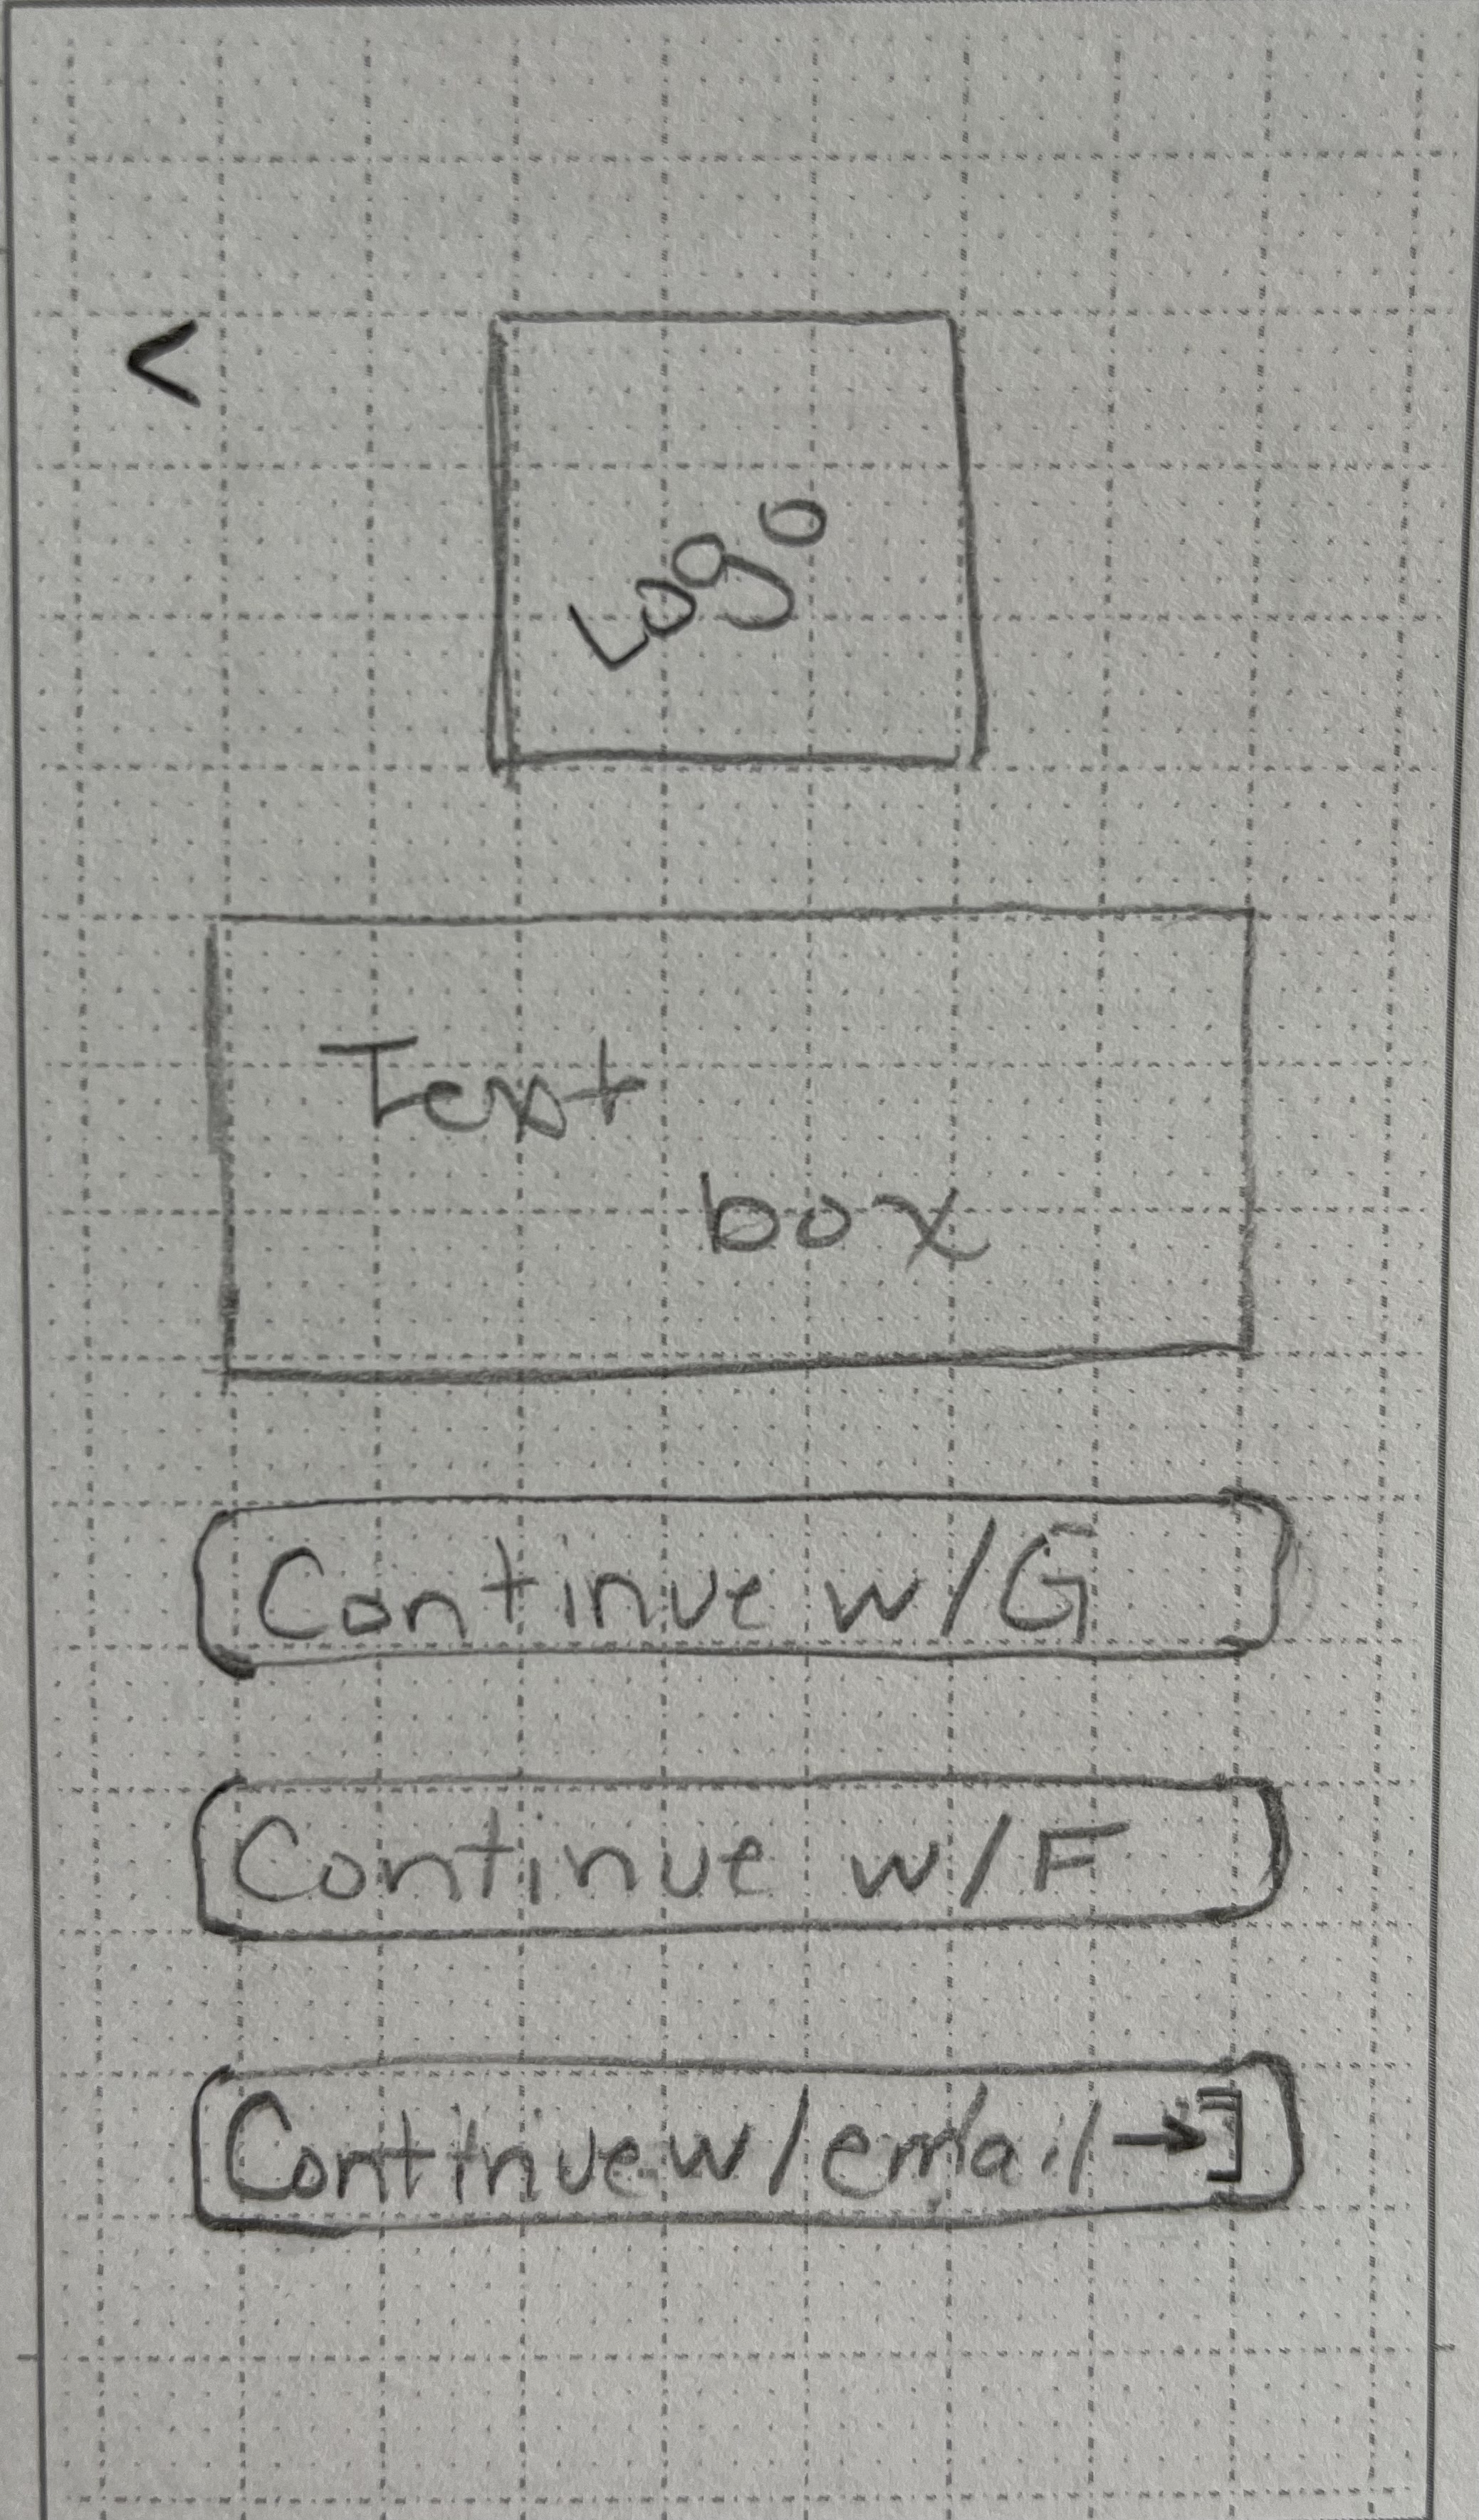 <
Logo
Text
box
Continue w/G
Continue w/F
Continue w/email →]